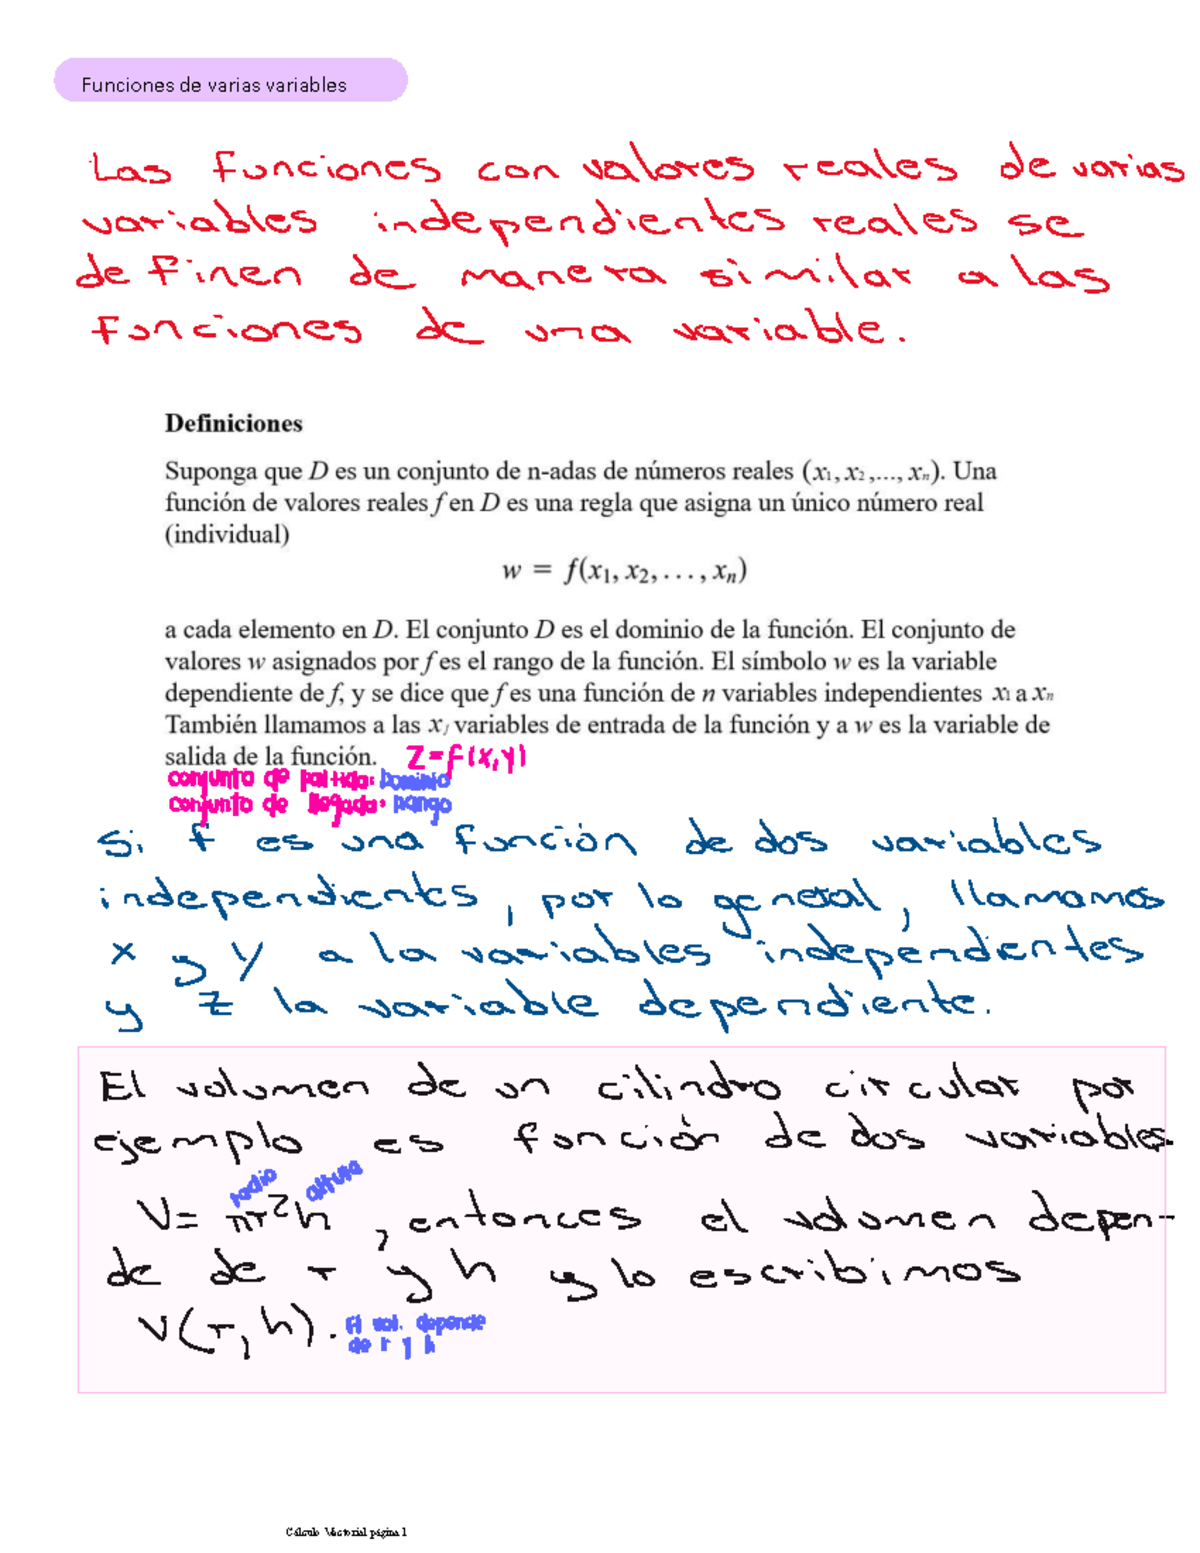 Funciones de varias variables
Las funciones con valores reales de varias
variables independientes reales se
definen de manera similar a las
funciones de una variable.
Definiciones
Suponga que D es un conjunto de n-adas de números reales (x₁, x₂ ,..., xₙ). Una
función de valores reales f en D es una regla que asigna un único número real
(individual)
w = f(x₁, x₂, . . . , xₙ)
a cada elemento en D. El conjunto D es el dominio de la función. El conjunto de
valores w asignados por f es el rango de la función. El símbolo w es la variable
dependiente de f, y se dice que f es una función de n variables independientes x₁ a xₙ
También llamamos a las xⱼ variables de entrada de la función y a w es la variable de
salida de la función. Z=f(x,y)
conjunto de partida: Dominio
conjunto de llegada: Rango
Si f es una función de dos variables
independientes, por lo general, llamamos
x y y a la variables independientes
y z la variable dependiente.
El volumen de un cilindro circular por
ejemplo es función de dos variables
radio altura
V= πr²h, entonces el volumen depen-
de de r y h y lo escribimos
V(r,h). El vol. depende
de r y h
Cálculo Vectorial página 1